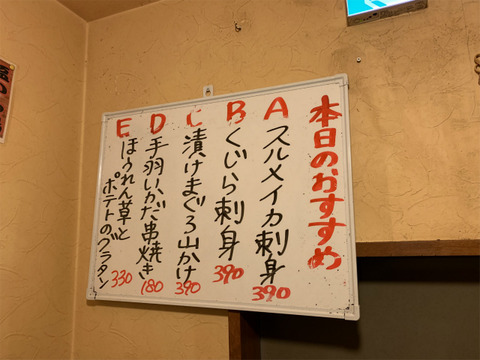 本日のおすすめ
A スルメイカ刺身 390
B くじら刺身 390
C 漬けまぐろ山かけ 390
D 手羽いかだ串焼き 180
E ほうれん草と
ポテトのグラタン 330